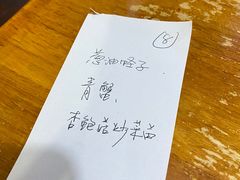 ⑧
葱油蛏子
青蟹、
杏鲍菇炒菜苗